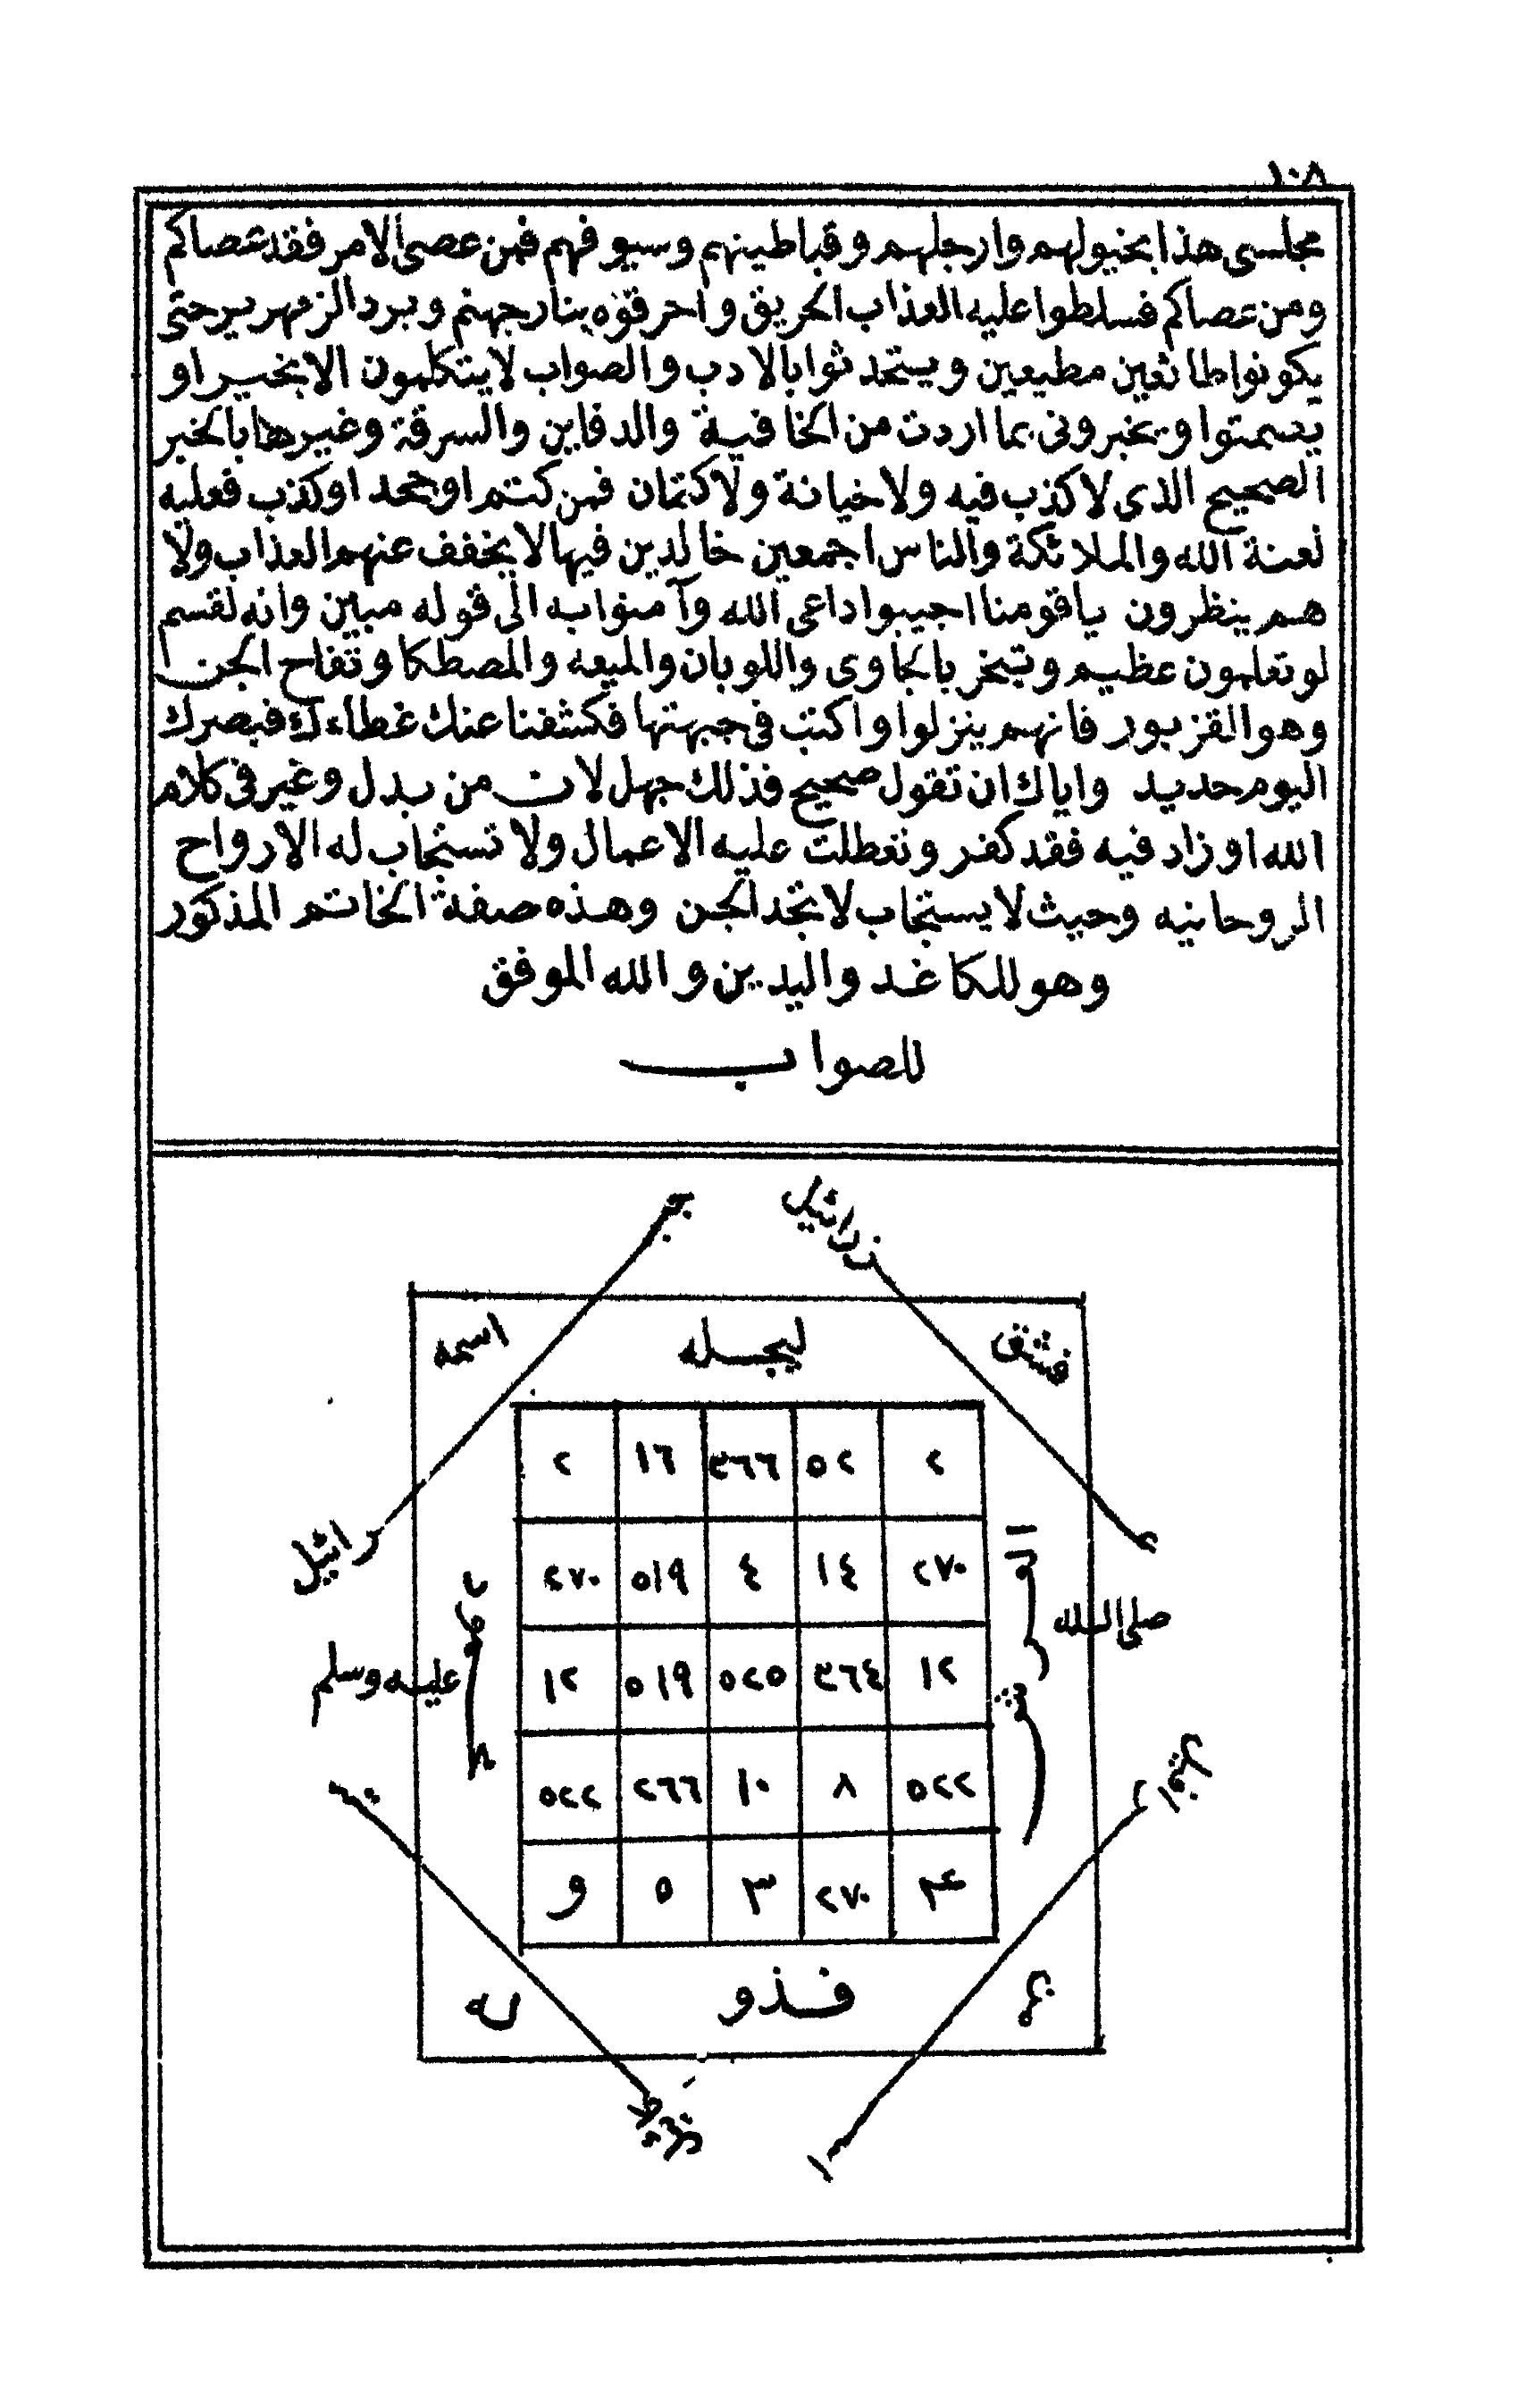 ١٠٨
مجلسى هذا بخيولهم وارجلهم وقباطينهم وسيوفهم فمن عصى الامر فقد عصاكم
ومن عصاكم فسلطوا عليه العذاب الحريق واحرقوه بنار جهنم وبرد الزمهرير حتى
يكونوا طائعين مطيعين ويتحدثوا بالادب والصواب لا يتكلمون الا بخير او
يصمتوا ويخبرونى بما اردت من الخافية والدفاين والسرقة وغيرها بالخبر
الصحيح الذى لا كذب فيه ولا خيانة ولا كتمان فمن كتم او جحد او كذب فعليه
لعنة الله والملائكة والناس اجمعين خالدين فيها لا يخفف عنهم العذاب ولا
هم ينظرون ياقومنا اجيبوا داعى الله وآمنوا به الى قوله مبين وانه لقسم
لو تعلمون عظيم وتبخر بالجاوى واللوبان والميعه والمصطكا وتفاح الجن
وهو القزبور فانهم ينزلوا واكتب فى جبهتها فكشفنا عنك غطاءك فبصرك
اليوم حديد واياك ان تقول صحيح فذلك جهل لان من بدل وغير فى كلام
الله او زاد فيه فقد كفر ونعطلت عليه الاعمال ولا تستجاب له الارواح
الروحانيه وحيث لا يستجاب لا تجد الجن وهذه صفة الخاتم المذكور
وهو للكاغد واليدين والله الموفق
للصواب
اسمه ليجله
٢ ٥٢ ٩٦٦ ١٦ ٢
٢٧٠ ١٤ ٤ ٥١٩ ٢٧٠
صلى الله
١٢ ٩٦٤ ٥٢٥ ٥١٩ ١٢
عليه وسلم
٥٢٢ ٨ ١٠ ٢٦٦ ٥٢٢
٢٧٠ ٣ ٥ و
فذو له